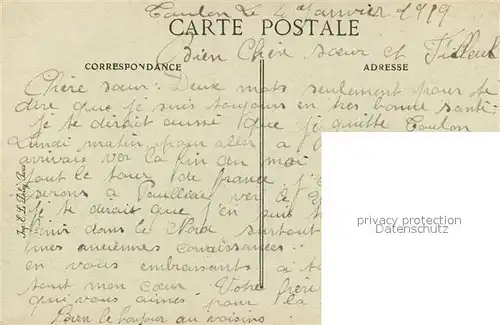 Toulon Le 4 Janvier 1919
CARTE POSTALE
Bien Chère sœur et Filleul
CORRESPONDANCE
ADRESSE
Chère sœur: Deux mots seulement pour te
dire que je suis toujours en tres bonne santé.
je te dirait aussi que je quitte Toulon
Lundi matin pour aller a
arrivais ver la fin du moi
tout le tour de france
serons a Pauillac ver le
Je te dirait que j'en
dans le Nord surtout
mes anciennes connaissances..
en vous embrassants a
tout mon cœur Votre frère
qui vous aimes pour la
Bien le bonjour au voisins
Imp. E. Le Deley, Paris
privacy protection
Datenschutz